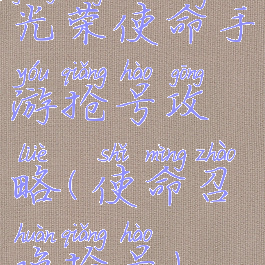 光荣使命手
yóu qiǎng hào gōng
游抢号攻
lüè shǐ mìng zhào
略(使命召
huàn qiǎng hào
唤抢号)